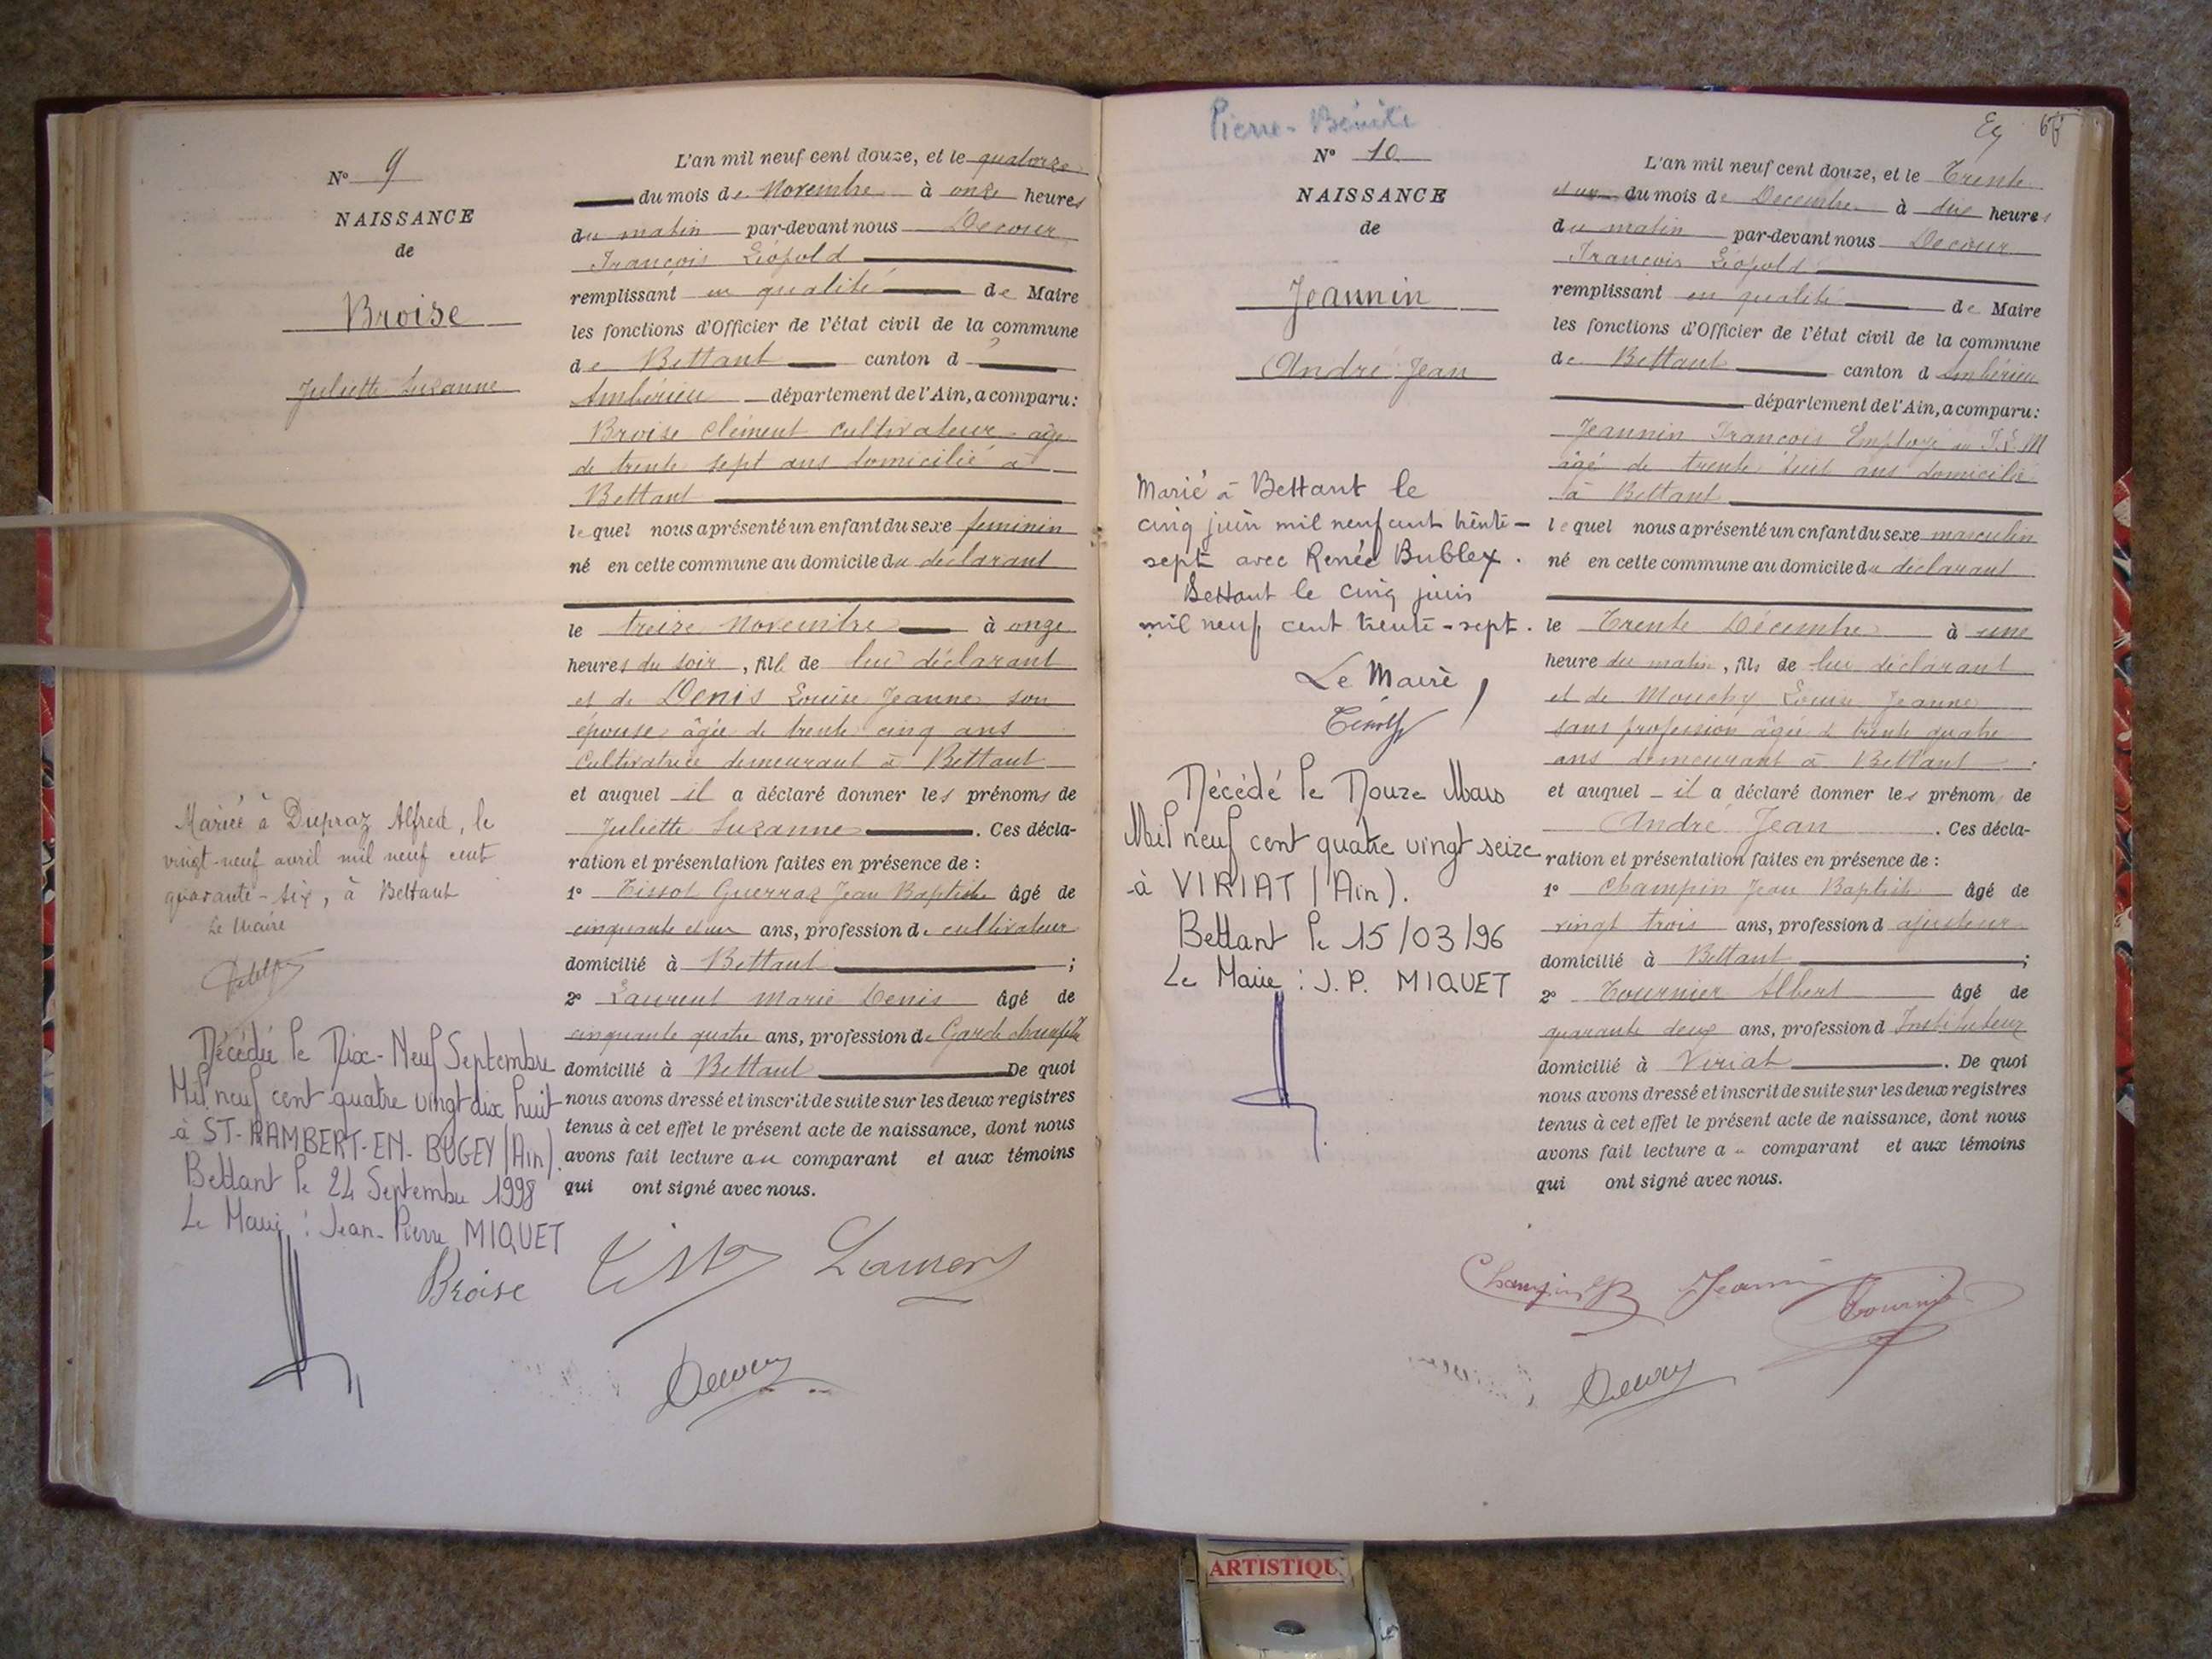 N° 9
NAISSANCE
de
Broise
Juliette Suzanne
Mariée à Dupraz Alfred, le
vingt-neuf avril mil neuf cent
quarante-six, à Bettant
Le Maire
Décédée le Dix-Neuf Septembre
Mil neuf cent quatre vingt dix huit
à ST-RAMBERT-EN-BUGEY (Ain).
Bettant le 24 Septembre 1998
Le Maire : Jean-Pierre MIQUET
L'an mil neuf cent douze, et le quatorze
du mois de Novembre à onze heures
du matin par-devant nous Decour
François Léopold
remplissant en qualité de Maire
les fonctions d'Officier de l'état civil de la commune
de Bettant canton d
Ambérieu département de l'Ain, a comparu :
Broise Clément cultivateur âgé
de trente sept ans domicilié à
Bettant
lequel nous a présenté un enfant du sexe féminin
né en cette commune au domicile du déclarant
le treize Novembre à onze
heures du soir, fille de lui déclarant
et de Denis Louise Jeanne son
épouse âgée de trente cinq ans
Cultivatrice demeurant à Bettant
et auquel il a déclaré donner les prénoms de
Juliette Suzanne. Ces décla-
ration et présentation faites en présence de :
1° Tissot Guerraz Jean Baptiste âgé de
cinquante et un ans, profession de cultivateur
domicilié à Bettant ;
2° Laurent Marie Denis âgé de
cinquante quatre ans, profession de Garde champêtre
domicilié à Bettant De quoi
nous avons dressé et inscrit de suite sur les deux registres
tenus à cet effet le présent acte de naissance, dont nous
avons fait lecture au comparant et aux témoins
qui ont signé avec nous.
Broise Laurent
Decour
Pierre-Bénite
N° 10
NAISSANCE
de
Jeannin
André Jean
Marié à Bettant le
cinq juin mil neuf cent trente-
sept avec Renée Bublex.
Bettant le cinq juin
mil neuf cent trente-sept.
Le Maire
Décédé le Douze Mars
Mil neuf cent quatre vingt seize
à VIRIAT (Ain).
Bettant le 15/03/96
Le Maire : J.P. MIQUET
L'an mil neuf cent douze, et le Trente
et un du mois de Décembre à dix heures
du matin par-devant nous Decour
François Léopold
remplissant en qualité de Maire
les fonctions d'Officier de l'état civil de la commune
de Bettant canton d Ambérieu
département de l'Ain, a comparu :
Jeannin François Employé au
âgé de trente huit ans domicilié
à Bettant
lequel nous a présenté un enfant du sexe masculin
né en cette commune au domicile du déclarant
le Trente Décembre à une
heure du matin, fils de lui déclarant
et de Mouchy Louise Jeanne
sans profession âgée de trente quatre
ans demeurant à Bettant.
et auquel il a déclaré donner les prénoms de
André Jean. Ces décla-
ration et présentation faites en présence de :
1° Champin Jean Baptiste âgé de
vingt trois ans, profession d ajusteur
domicilié à Bettant ;
2° Tournier Albert âgé de
quarante deux ans, profession d Instituteur
domicilié à Viriat. De quoi
nous avons dressé et inscrit de suite sur les deux registres
tenus à cet effet le présent acte de naissance, dont nous
avons fait lecture au comparant et aux témoins
qui ont signé avec nous.
Jeannin Tournier
Decour
ARTISTIQU